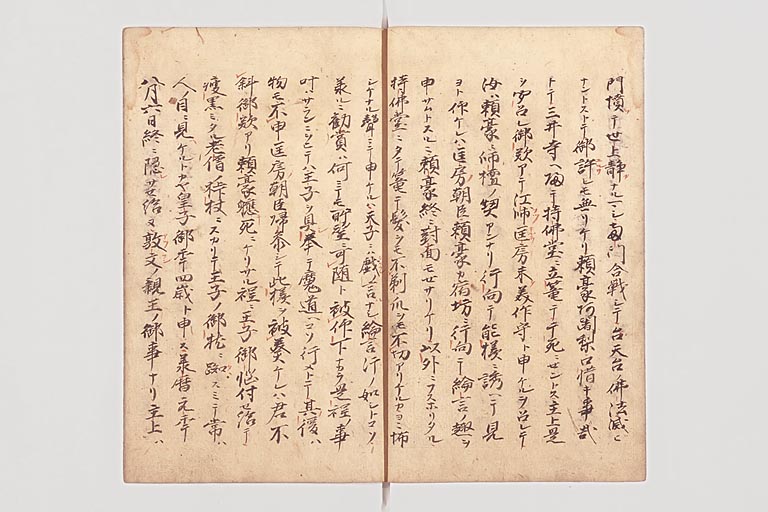 門憤テ世上静ナルヘシヤ両門合戦シテ台天台ノ佛法滅亡
ナントストテ御許シモ無リケリ頼豪阿闍梨口惜キ事哉
トテ三井寺ヘ帰テ持佛堂ニ立篭テ干死ニセントス主上是
ヲ安召レ御歎アテ江帥匡房未美作守ト申ケルヲ召シテ
汝ハ頼豪ニ師檀ノ契アンナリ行向テ能様ニ誘ヘテ見
ヨト仰ケレハ匡房朝臣頼豪カ宿坊ニ行向テ綸言ノ趣ヲ
申サムトスルニ頼豪終ニ對面モセサリケリ以外ニフスホリタル
持佛堂ニタテ篭テ髪ヲモ不剃爪ヲモ不切アリケルカヨニ怖
シケナル聲ニテ申ケルハ天子ニハ戯言ナシ綸言汗ノ如シトコソ
承ルニ勧賞ハ何ニモ所望ニ可随ト被仰下ナカラ是程ノ事
叶ハサランニヲヒテハ王子ヲ具奉テ魔道ヘコソ行メトテ其後ハ
物モ不申匡房朝臣帰参シテ此様ヲ被奏ケレハ君不
斜御歎アリ頼豪軈死ニケリサル程ニ王子御悩付セ給テ
疲黒ミタル老僧ノ杖ニスカリテ王子ノ御枕ニ スミテ常ハ
人目ニ見ケルトカヤ皇子御年四歳ト申ス承暦元年
八月六日終ニ隠サセ給ヌ敦文ノ親王ノ御事ナリ主上ハ